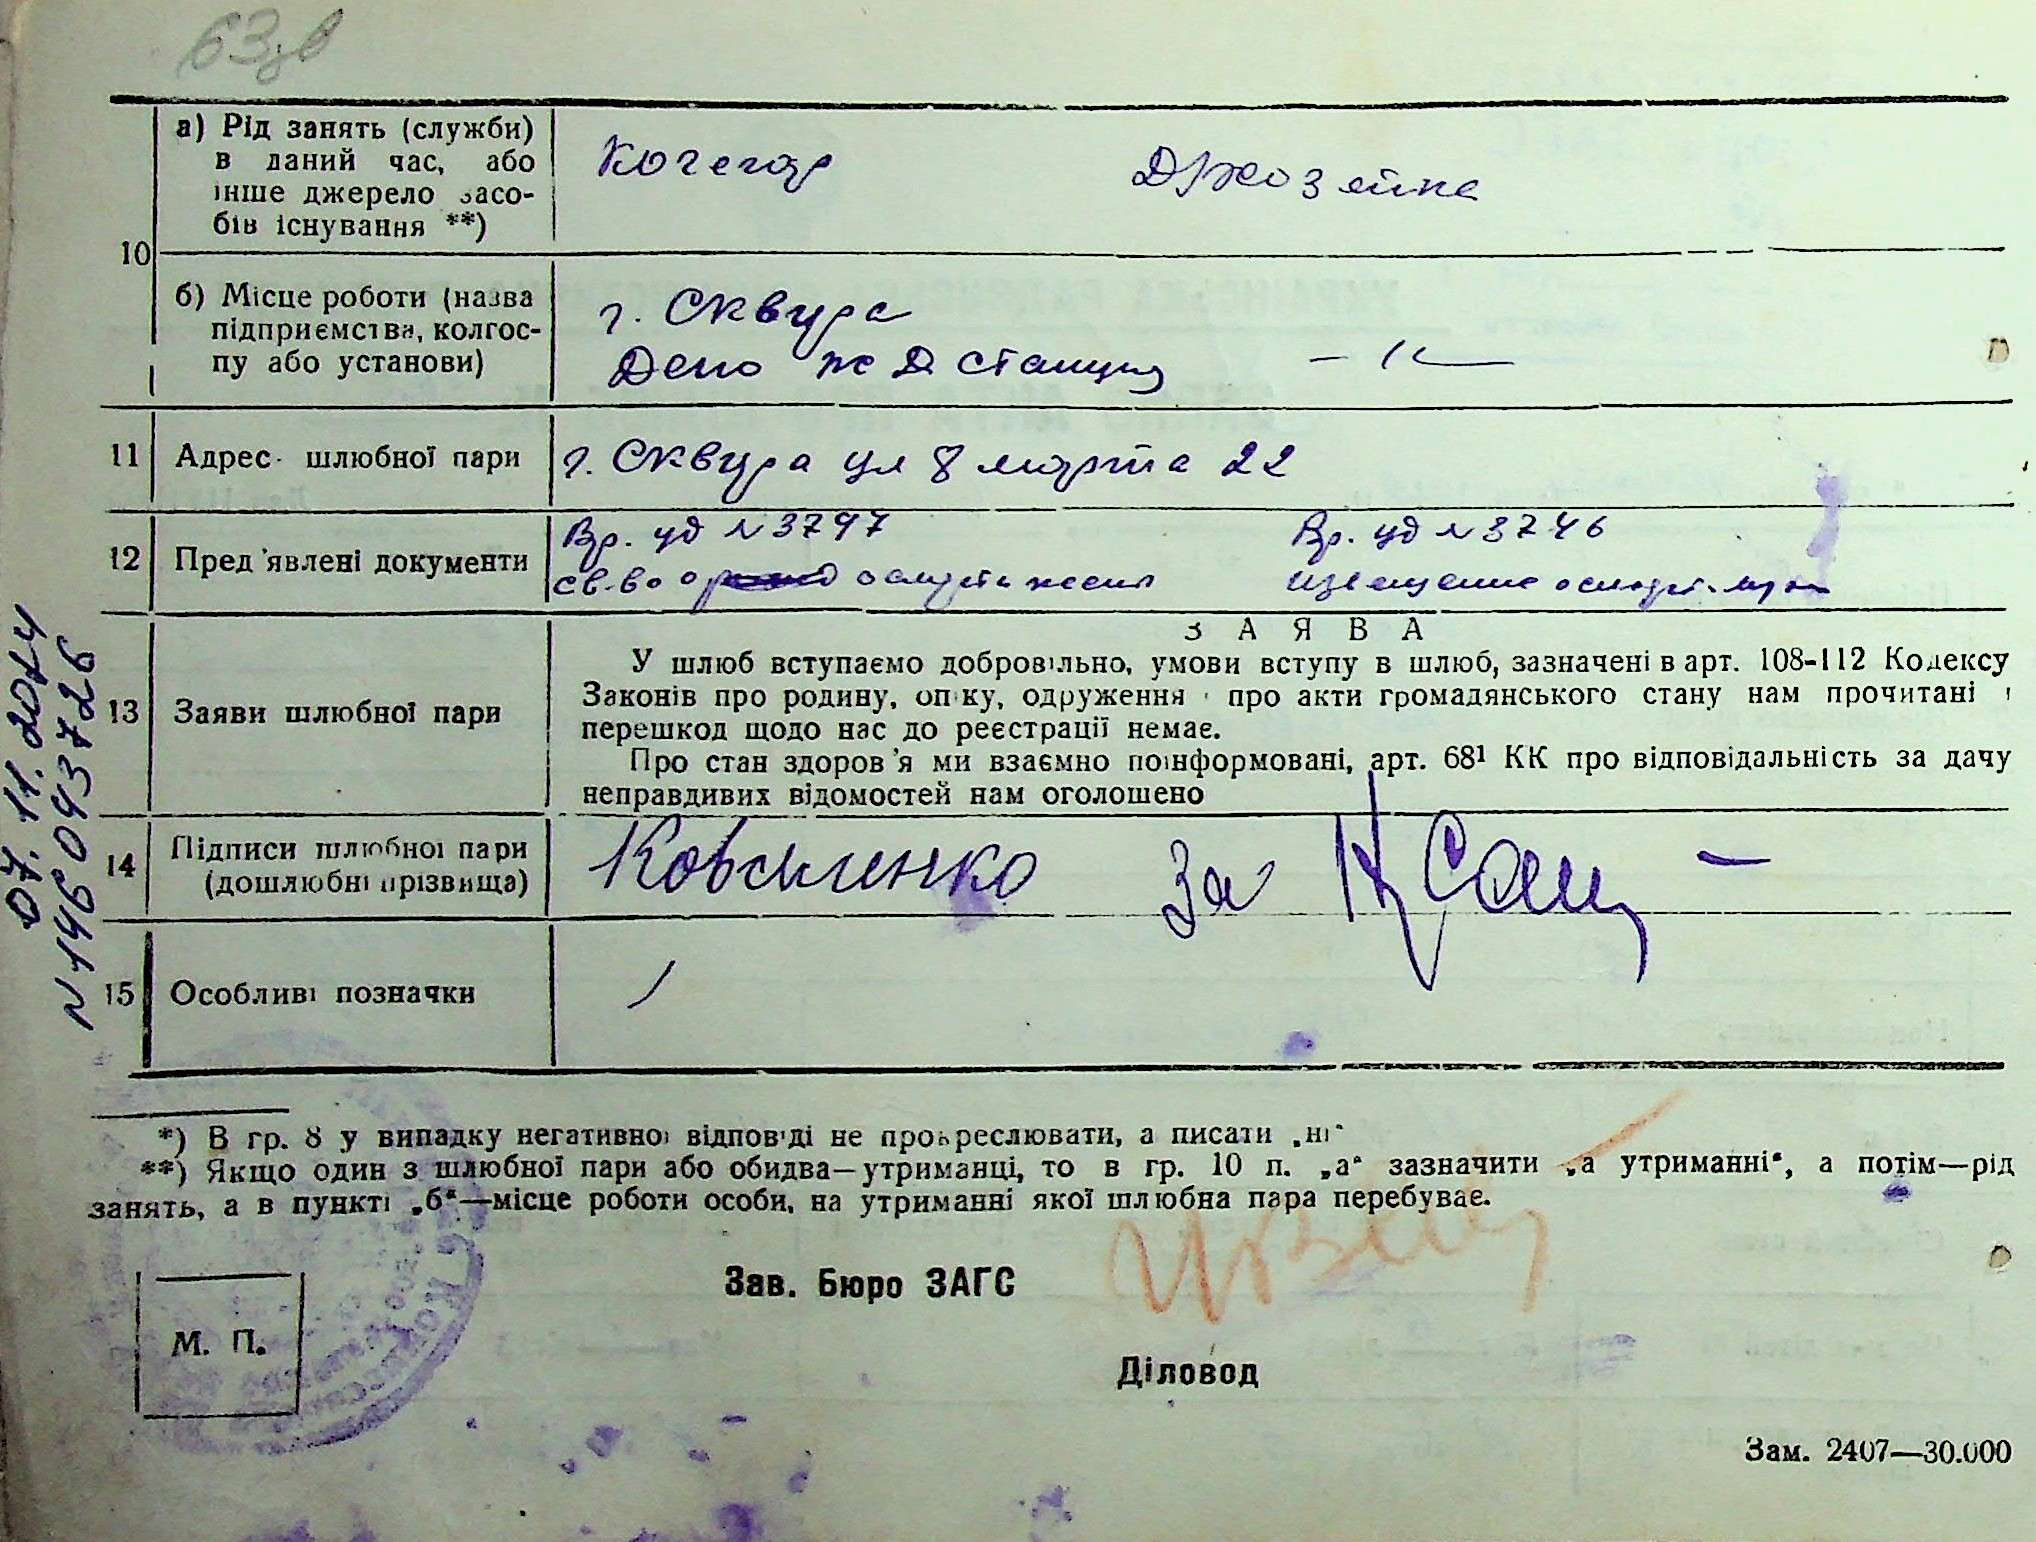 63зв
10
а) Рід занять (служби)
в даний час, або
інше джерело засо-
бів існування **)
Кочегар
Д/хозяйка
б) Місце роботи (назва
підприємства, колгос-
пу або установи)
г. Сквира
Депо ж Д станция
— 〃 —
11 Адрес шлюбної пари г. Сквира ул 8 марта 22
12 Пред'явлені документи
Вр. уд N 3797
св-во о смерти жены
Вр. уд N 3746
извещение о смерт. мужа
13 Заяви шлюбної пари
ЗАЯВА
У шлюб вступаємо добровільно, умови вступу в шлюб, зазначені в арт. 108-112 Кодексу
Законів про родину, опіку, одруження і про акти громадянського стану нам прочитані і
перешкод щодо нас до реєстрації немає.
Про стан здоров'я ми взаємно поінформовані, арт. 68¹ КК про відповідальність за дачу
неправдивих відомостей нам оголошено
14 Підписи шлюбної пари
(дошлюбні прізвища)
Коваленко За
15 Особливі позначки
07.11.2014
N 146 043726
*) В гр. 8 у випадку негативної відповіді не прокреслювати, а писати „ні"
**) Якщо один з шлюбної пари або обидва—утриманці, то в гр. 10 п. „а" зазначити „а утриманні", а потім—рід
занять, а в пункті „б"—місце роботи особи, на утриманні якої шлюбна пара перебуває.
Зав. Бюро ЗАГС
М. П.
Діловод
Зам. 2407—30.000